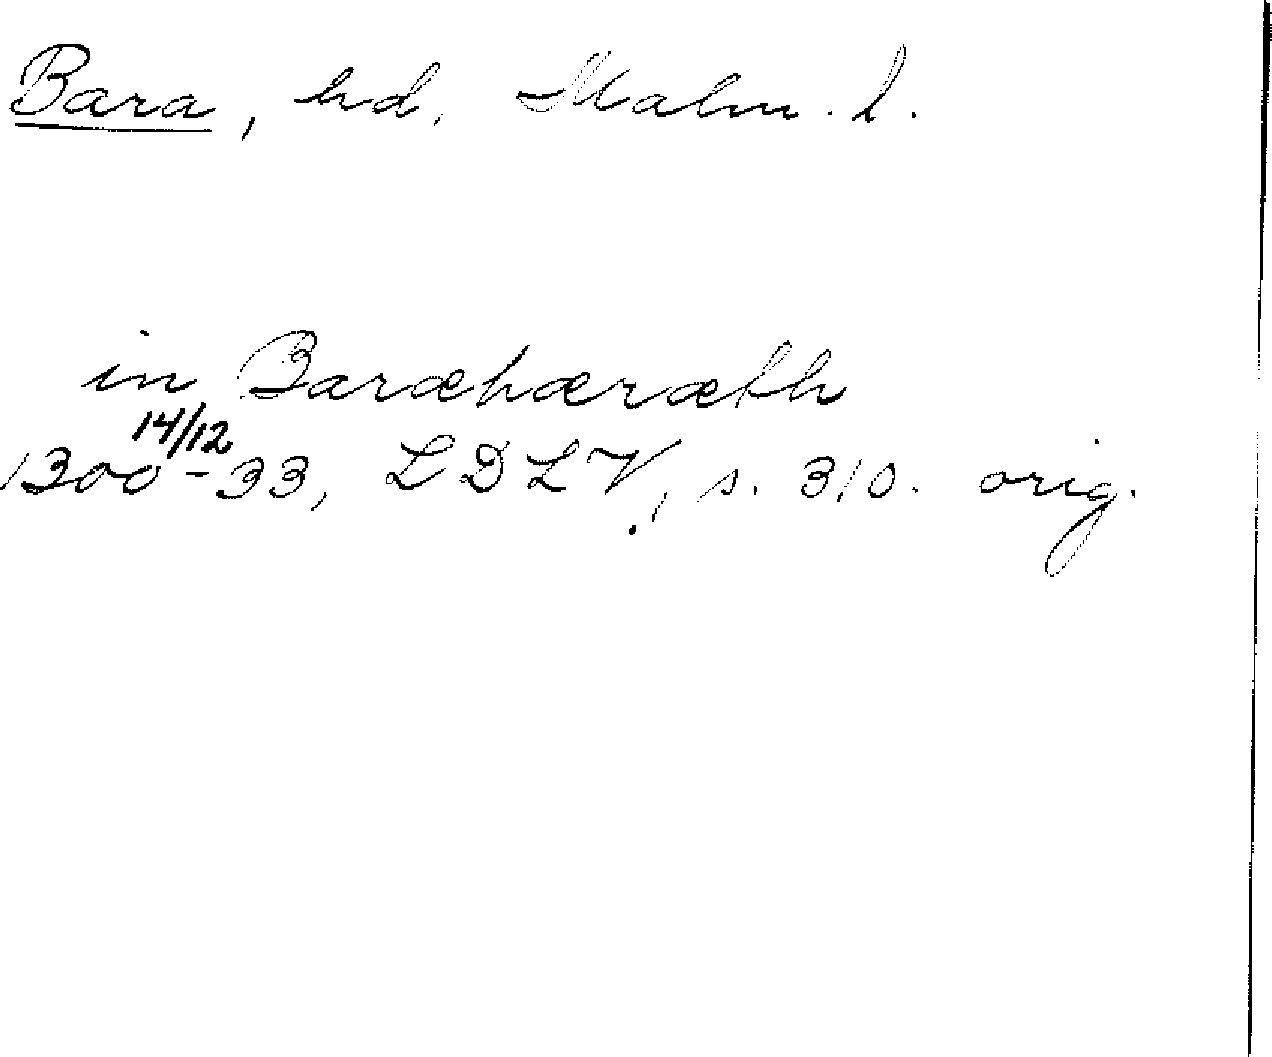 Bara, hd. Malm. l.
in Baræhæræth
14/12
1300-33, LDLV, s. 310. orig.